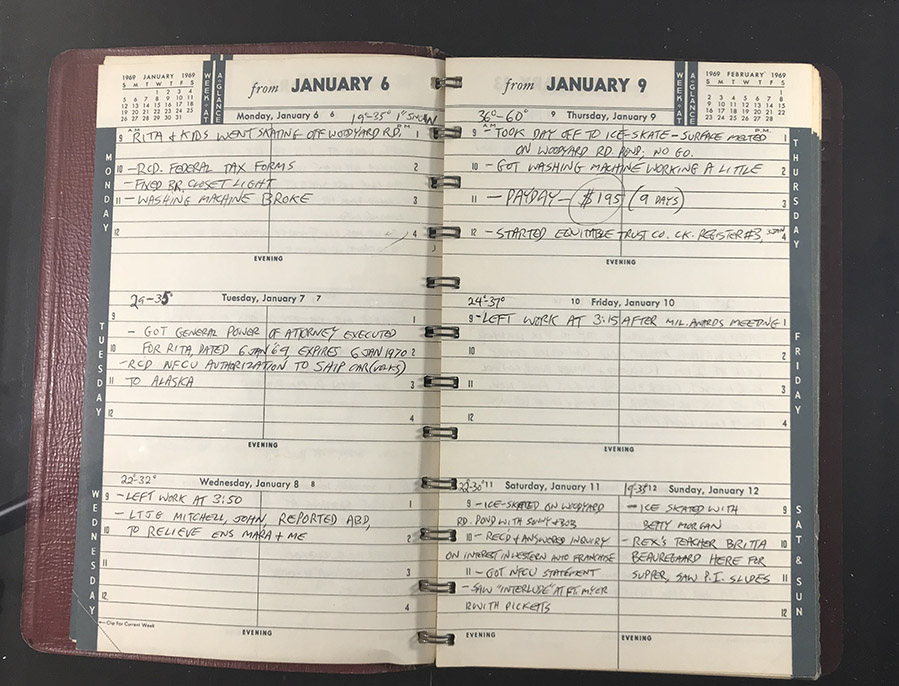 1969 JANUARY 1969
S M T W T F S
1 2 3 4
5 6 7 8 9 10 11
12 13 14 15 16 17 18
19 20 21 22 23 24 25
26 27 28 29 30 31
WEEK • AT
A • GLANCE
from JANUARY 6
MONDAY
Monday, January 6 6 19°-35° 1" SNOW
A.M. P.M.
9 RITA & KIDS WENT SKATING OFF WOODYARD RD. 1
10 - RCD. FEDERAL TAX FORMS 2
- FIXED BR. CLOSET LIGHT
11 - WASHING MACHINE BROKE 3
12 4
EVENING
TUESDAY
29-35 Tuesday, January 7 7
9 1
- GOT GENERAL POWER OF ATTORNEY EXECUTED
10 FOR RITA, DATED 6 JAN 69, EXPIRES 6 JAN 1970 2
- RCD NFCU AUTHORIZATION TO SHIP CAR (VOLKS)
11 TO ALASKA 3
12 4
EVENING
WEDNESDAY
22°-32° Wednesday, January 8 8
9 - LEFT WORK AT 3:50 1
- LTJG MITCHELL, JOHN, REPORTED ABD,
10 TO RELIEVE ENS MARA & ME 2
11 3
12 4
← Clip For Current Week
EVENING
from JANUARY 9
WEEK • AT
A • GLANCE
1969 FEBRUARY 1969
S M T W T F S
1
2 3 4 5 6 7 8
9 10 11 12 13 14 15
16 17 18 19 20 21 22
23 24 25 26 27 28
THURSDAY
36°-60° 9 Thursday, January 9
A.M. P.M.
9 - TOOK DAY OFF TO ICE-SKATE - SURFACE MELTED 1
ON WOODYARD RD. POND; NO GO.
10 - GOT WASHING MACHINE WORKING A LITTLE 2
11 - PAYDAY - $195 (9 DAYS) 3
12 - STARTED EQUITABLE TRUST CO. CK. REGISTER #3, 3 JAN 4
EVENING
FRIDAY
24°-37° 10 Friday, January 10
9 - LEFT WORK AT 3:15 AFTER MIL. AWARDS MEETING 1
10 2
11 3
12 4
EVENING
SAT & SUN
22°-30° 11 Saturday, January 11
9 - ICE-SKATED ON WOODYARD
RD. POND WITH SONNY & BOB
10 - RECD & ANSWERED INQUIRY
ON INTEREST IN WESTERN AUTO FRANCHISE
11 - GOT NFCU STATEMENT
- SAW "INTERLUDE" AT FT. MYER
WITH PICKETTS
EVENING
19°-35° 12 Sunday, January 12
- ICE SKATED WITH 9
BETTY MORGAN
- REX'S TEACHER BRITTA 10
BEAUREGAARD HERE FOR
SUPPER, SAW P.I. SLIDES 11
12
EVENING